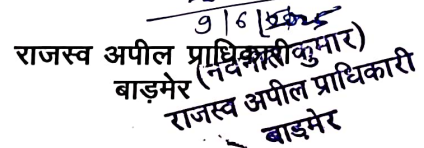 9/6/2025
राजस्व अपील प्राधिकारी
बाड़मेर
कुमार)
राजस्व अपील प्राधिकारी
बाड़मेर